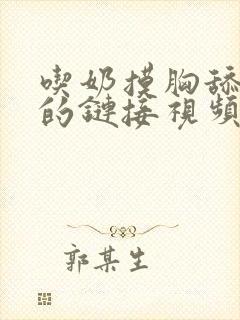 喫奶摸胸舔
的鏈接視頻
郭某生